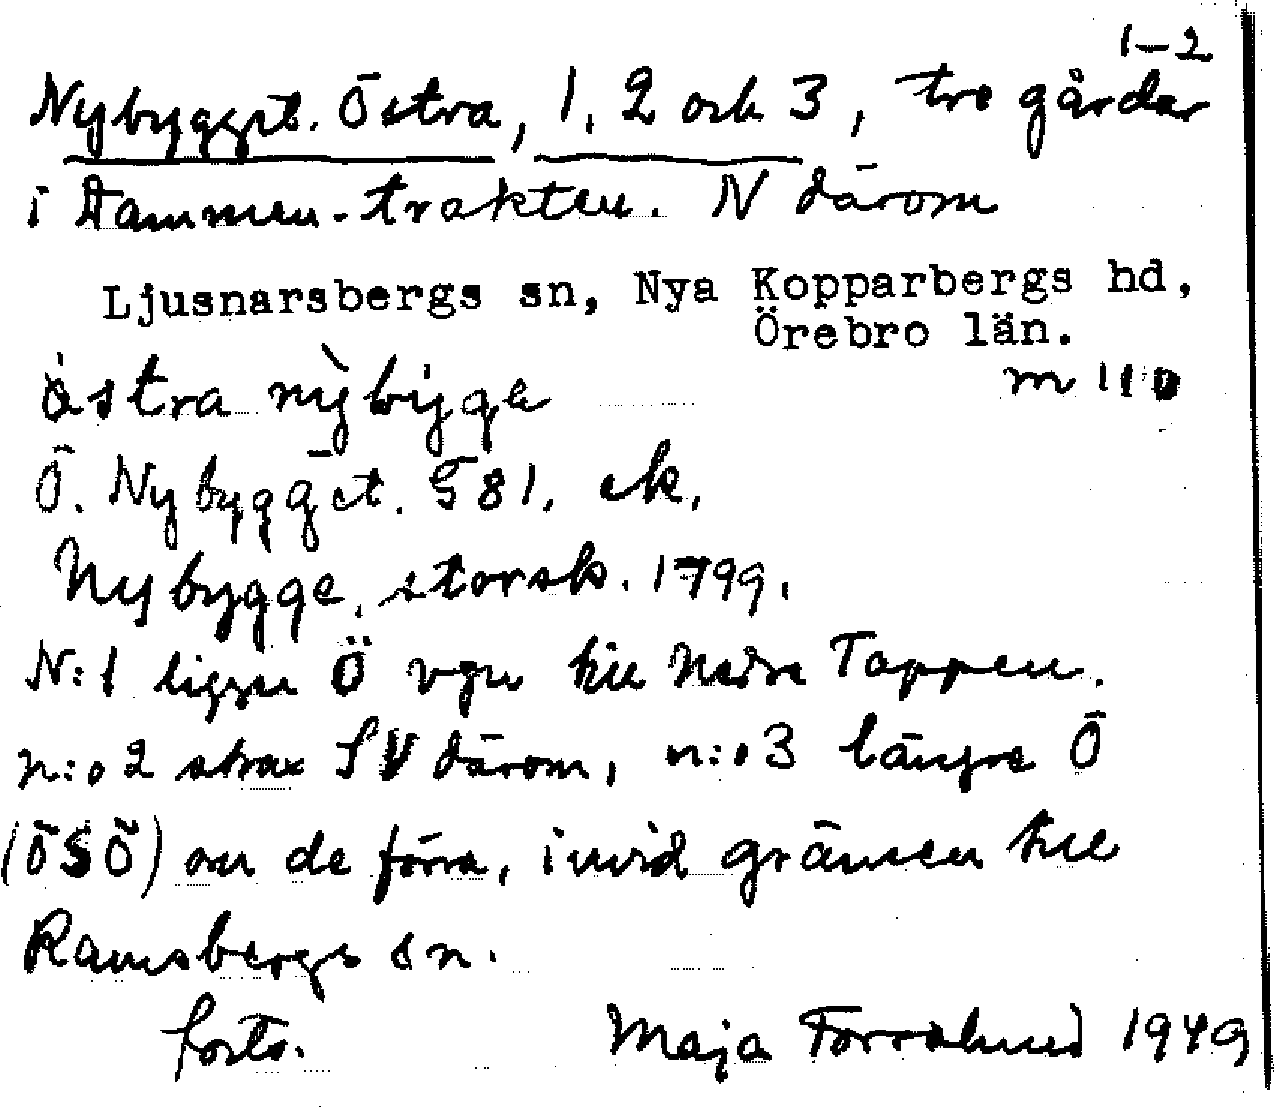 1–2
Nybygget. Östra, 1, 2 och 3, tre gårdar
i Dammen-trakten. N därom
Ljusnarsbergs sn, Nya Kopparbergs hd,
Örebro län.
m 110
östra nỳbyga
Ö. Nybygget. G 81, ek.
Nybygge, storsk. 1799.
N:1 ligger Ö vgn till Nedre Tappen.
n:o 2 strax SV därom, n:o 3 längre Ö
(ÖSÖ) om de förra, invid gränsen till
Ramsbergs sn.
forts. Maja Forsslund 1949